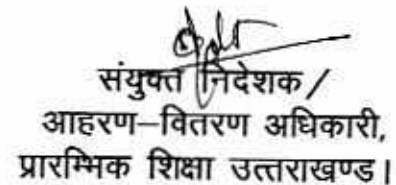 संयुक्त निदेशक /
आहरण–वितरण अधिकारी,
प्रारम्भिक शिक्षा उत्तराखण्ड।